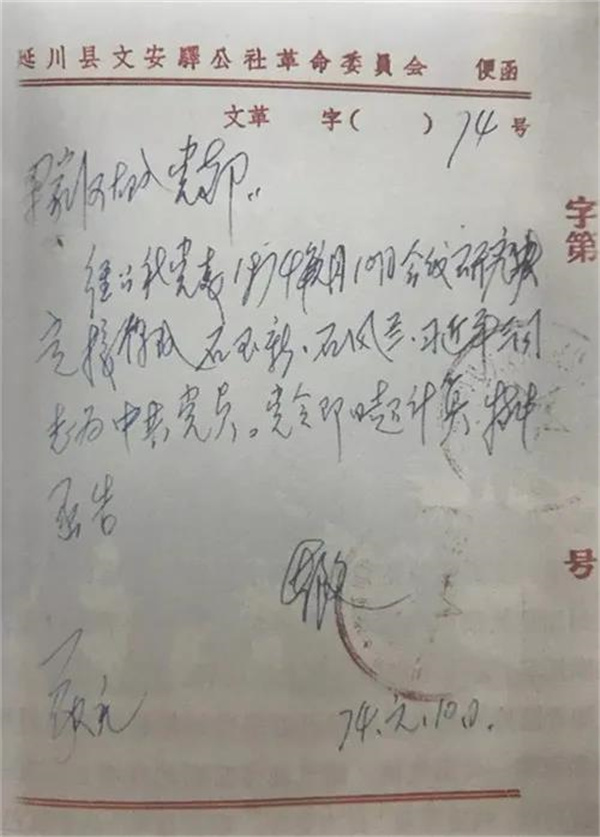 延川县文安驛公社革命委員会 便函
文革 字( ) 74 号
梁家河大队党支部：
经公社党委1974年元月10日会议研究决
定接收 石玉新、石风兰、习近平同
志为中共党员。党令即日起计算。特此
函告
74.元.10日.
字第
号